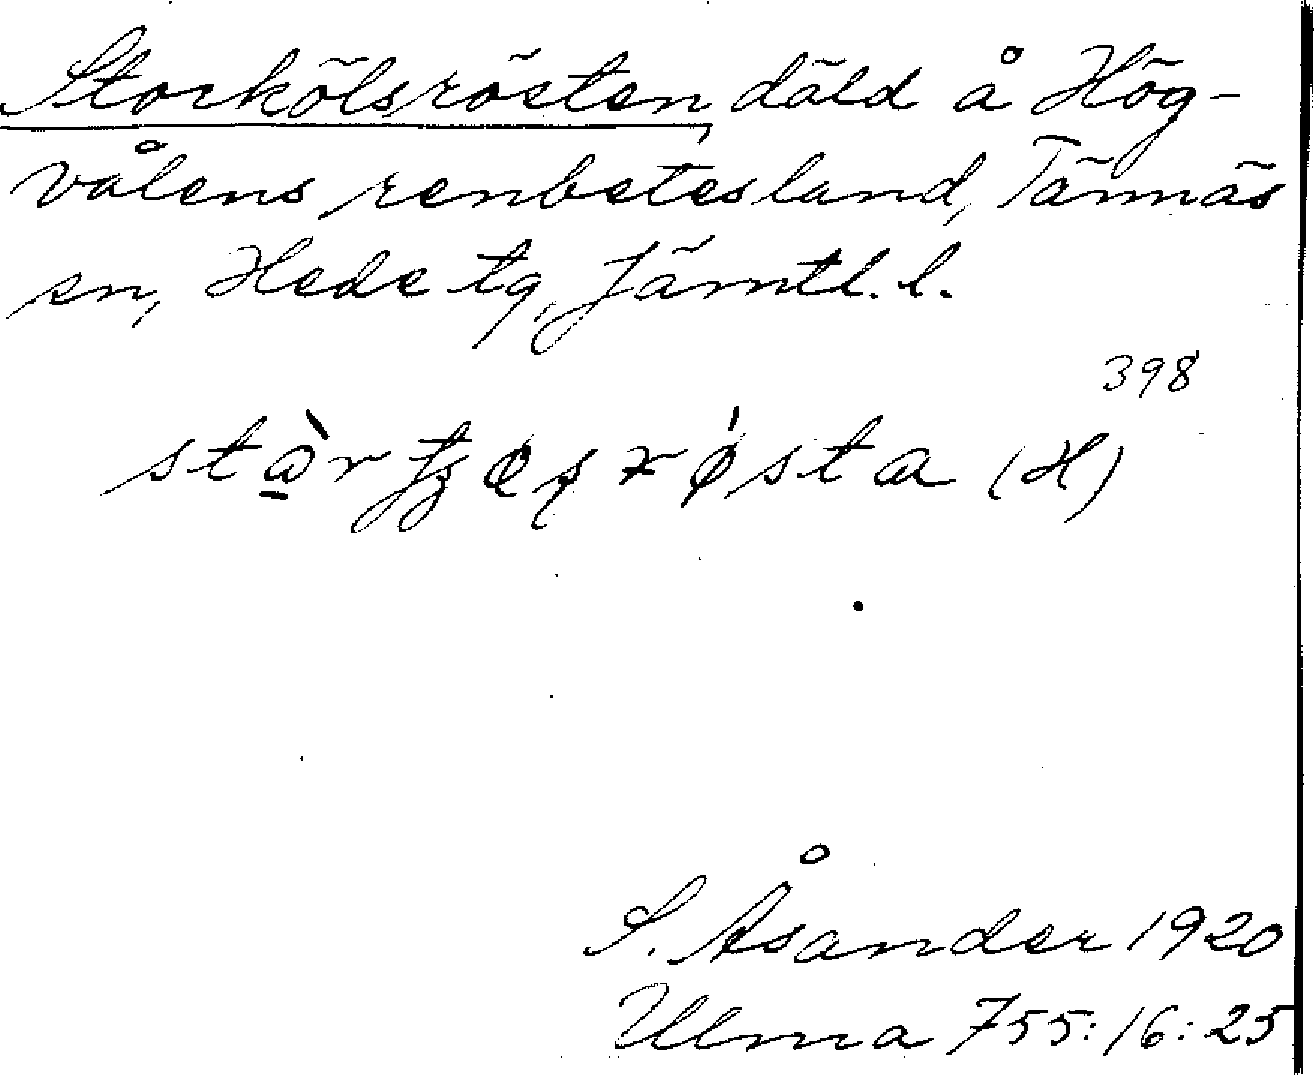 Storkölsrösten, däld å Hög-
vålens renbetesland, Tännäs
sn, Hede tg, Jämtl. l.
398
(H)
S. Åsander 1920
Ulma 755:16:25